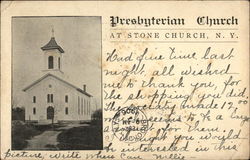 Presbyterian Church
AT STONE CHURCH, N. Y.
Had fine time last
night, all wished
me to thank you, for
the shopping you did.
The society made 12.00
to be a
for them,
you would
be interested in this
picture, write when can. Millie